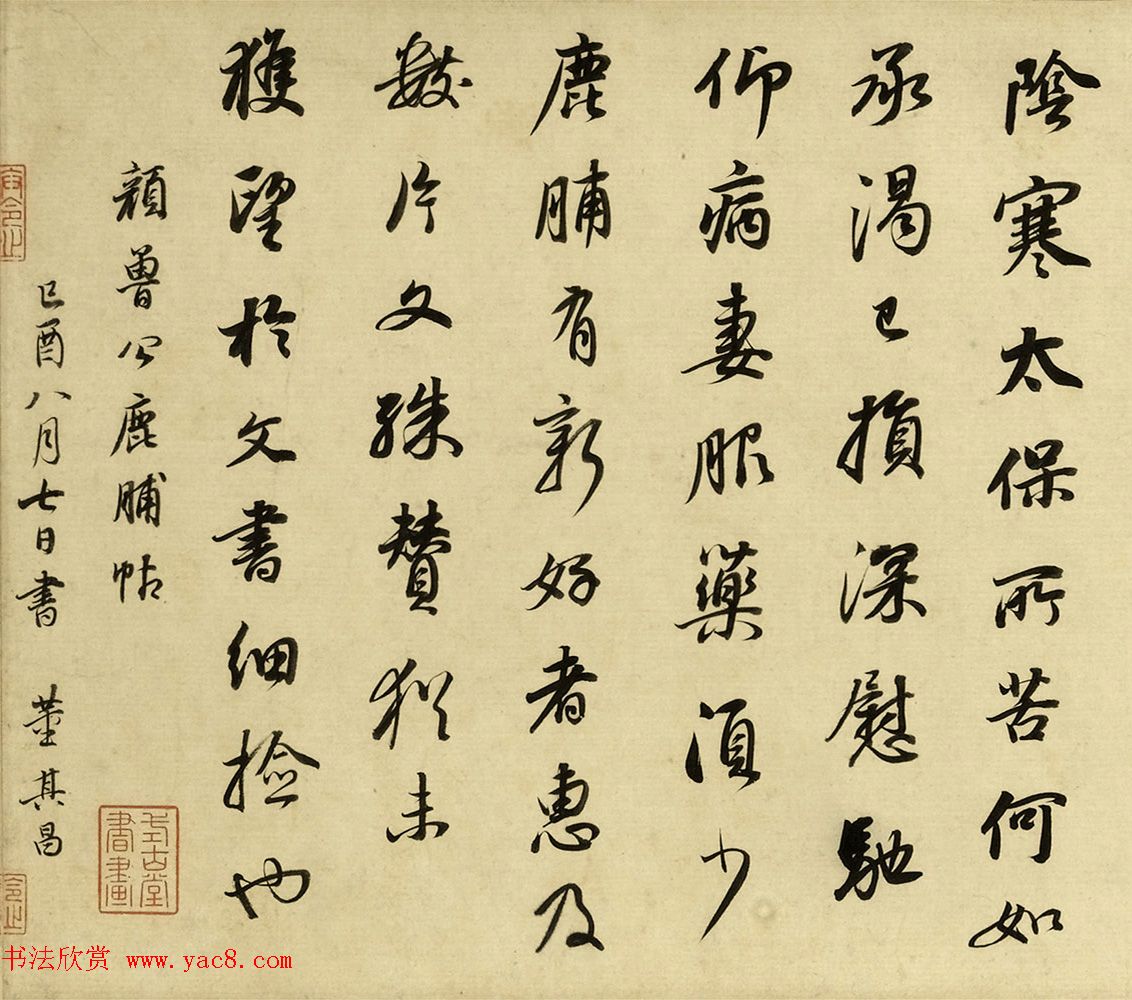 陰寒太保所苦何如
承渴已損深慰馳
仰病妻服藥須少
鹿脯有新好者惠及
數片文殊贊猶未
獲望於文書細撿也
顏魯公鹿脯帖
己酉八月七日書 董其昌
式古堂
書畫
书法欣赏 www.yac8.com